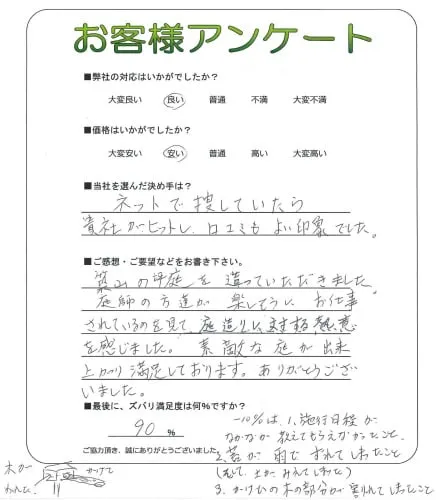 お客様アンケート
■弊社の対応はいかがでしたか?
大変良い 良い 普通 不満 大変不満
■価格はいかがでしたか?
大変安い 安い 普通 高い 大変高い
■当社を選んだ決め手は?
ネットで捜していたら
貴社がヒットし、口コミもよい印象でした。
■ご感想・ご要望などをお書き下さい。
築山の坪庭を造っていただきました
庭師の方達が楽しそうにお仕事
されているのを見て、庭造りに対する熱意
を感じました。素敵な庭が出来
上がり満足しております。ありがとうござ
いました。
■最後に、ズバリ満足度は何%ですか?
90 %
ご協力頂き、誠にありがとうございました
-10%は、1、施行日程が
なかなか教えてもらえなかったこと、
2、苔が雨でずれてしまったこと
(そして土がみえてしまった)
3、かけひの木の部分が割れてしまったこと
木が
われた
かけて